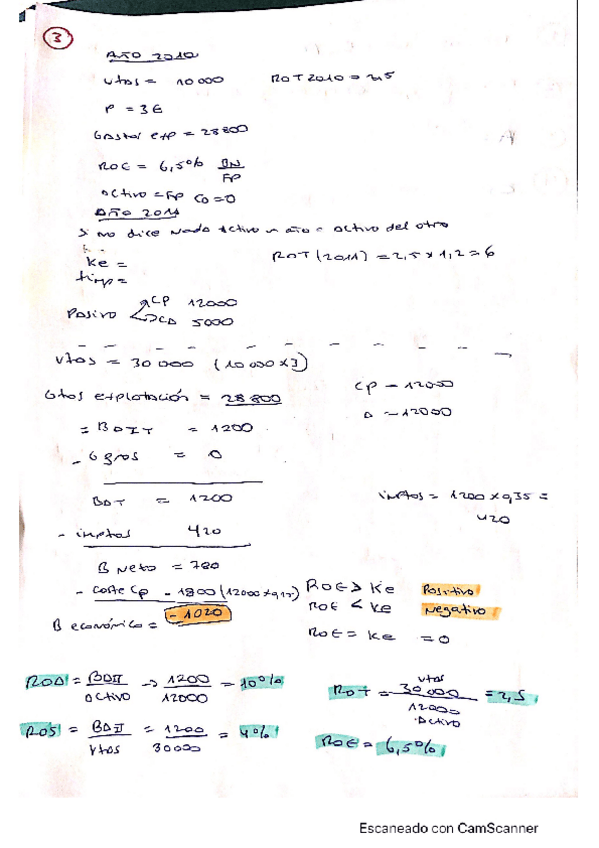 3
AÑO 2010
Vtas = 10000 ROT 2010 = 2,5
P = 3€
Gastos exp = 28800
ROE = 6,5% BN/FP
activo = FP CD = 0
AÑO 2011
Si no dice nada activo un año = activo del otro
Ke = ROT (2011) = 2,5 x 1,2 = 6
timp =
Pasivo CP 12000
CD 5000
Vtas = 30 000 (10 000 x 3)
CP - 12000
Gtos explotación = 28 800
D - 12000
= BAIT = 1200
- G gros = 0
BAT = 1200 imptos = 1200 x 0,35 =
420
- imptos 420
B Neto = 780
- Coste CP - 1800 (12000 x 0,15) ROE > Ke Positivo
ROE < Ke Negativo
B económico = - 1020
ROE = Ke = 0
ROA = BAII/activo → 1200/12000 = 10%
ROT = vtas 30 000/12000 activo = 2,5
ROS = BAII/Vtas = 1200/30000 = 4%
ROE = 6,5%
Escaneado con CamScanner